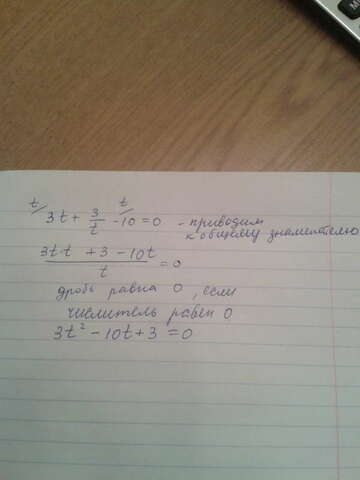 t/ 3t + 3/t t/ -10 = 0 - приводим
к общему знаменателю
3t·t + 3 - 10t / t = 0
дробь равна 0, если
числитель равен 0
3t² - 10t + 3 = 0